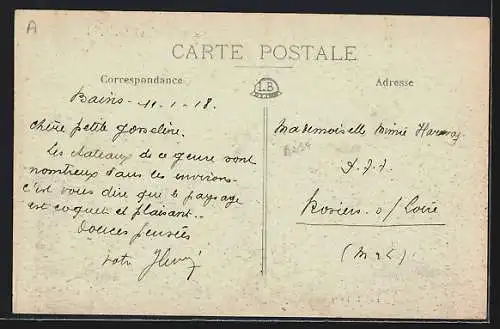 A
CARTE POSTALE
Correspondance
LB
Adresse
Bains - 11-1-18.
Chère petite
Les chateaux de ce genre sont
nombreux dans ces environs
c'est vous dire que le paysage
est coquet et plaisant..
Douces pensées
votre
Mademoiselle Mimie
Rosiers s/Loire
(M & L)